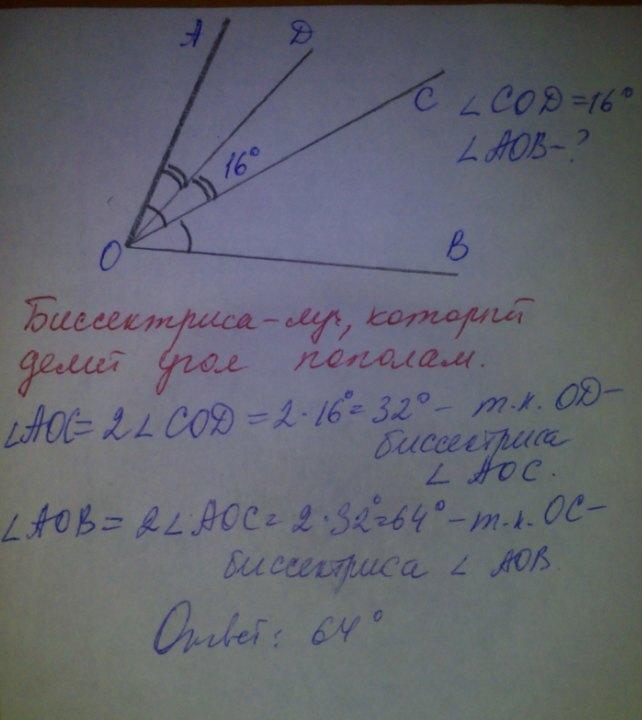 A D
C ∠COD=16°
16°
∠AOB-?
O B
Биссектриса-луч, который
делит угол пополам.
∠AOC= 2∠COD = 2·16°= 32° - т.к. OD-
биссектриса
∠ AOC.
∠AOB = 2∠AOC= 2·32°=64° - т.к. OC-
биссектриса ∠ AOB.
Ответ: 64°